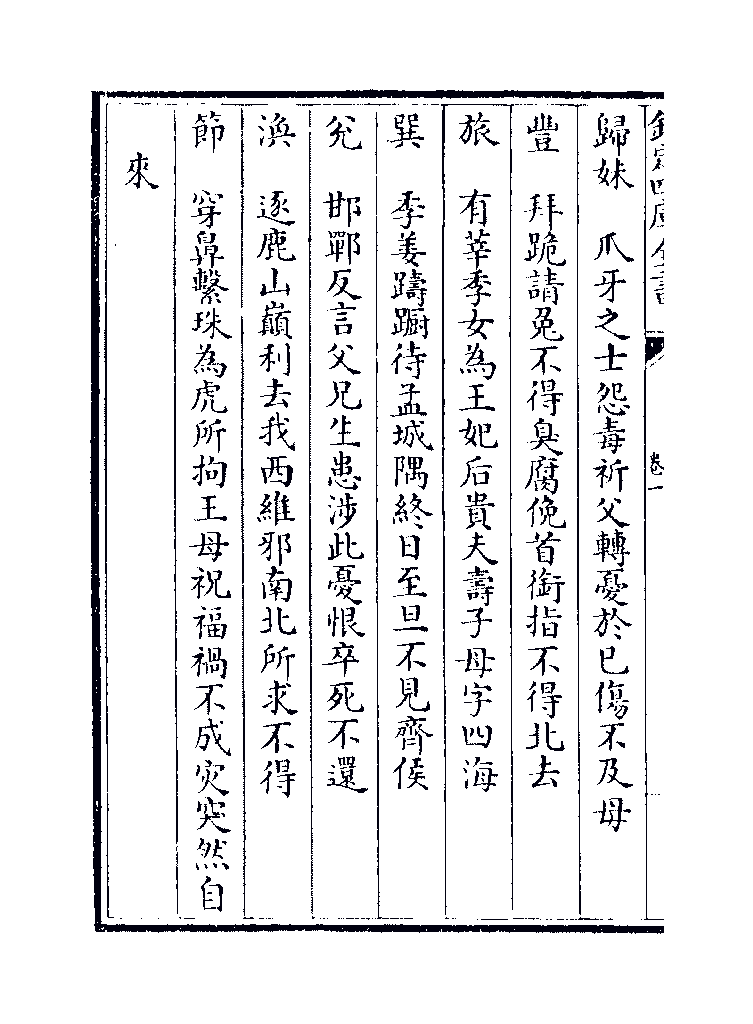 欽定四庫全書 卷一
歸妹 爪牙之士怨毒祈父轉憂於已傷不及母
豐 拜跪請免不得臭腐俛首銜指不得北去
旅 有莘季女為王妃后貴夫壽子母字四海
巽 季姜躊蹰待孟城隅終日至旦不見齊侯
兊 邯鄲反言父兄生患涉此憂恨卒死不還
渙 逐鹿山巔利去我西維邪南北所求不得
節 穿鼻繫珠為虎所拘王母祝福禍不成灾突然自
來